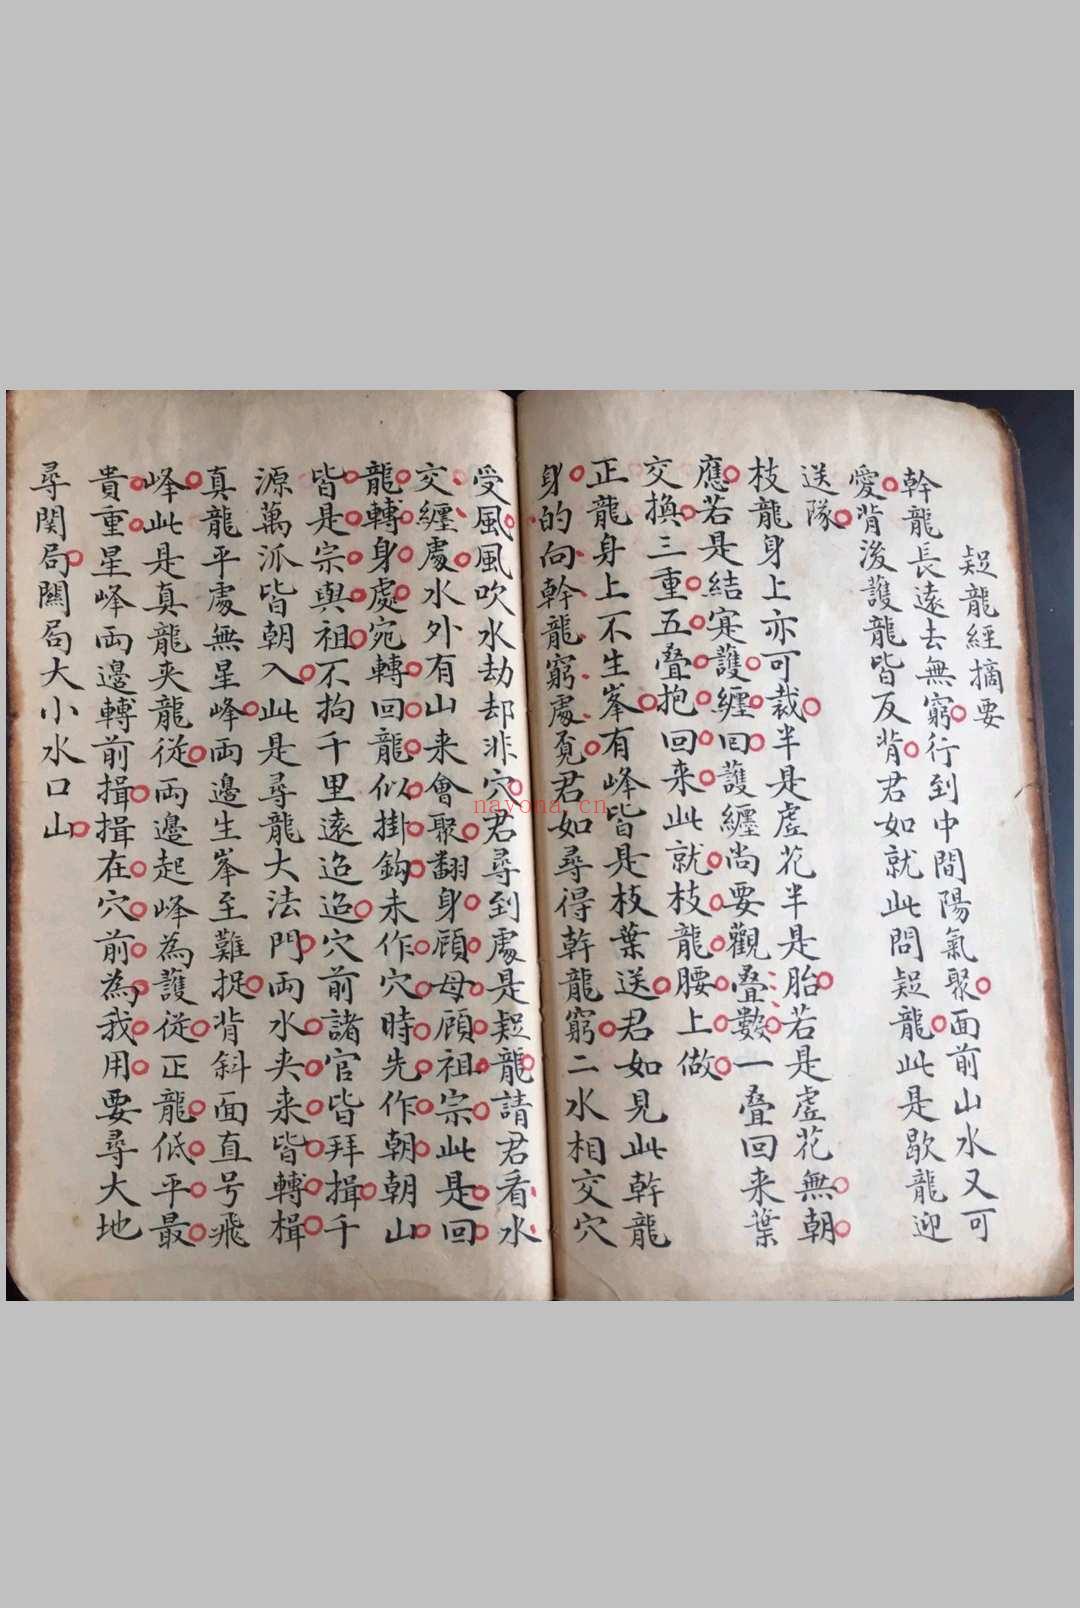 疑龍經摘要
幹龍長遠去無窮行到中間陽氣聚面前山水又可
愛背後護龍皆反背君如就此問疑龍此是歇龍迎
送隊
枝龍身上亦可裁半是虛花半是胎若是虛花無朝
應若是結寔護纏回護纏尚要觀叠數一叠回来葉
交換三重五叠抱回来此就枝龍腰上做
正龍身上不生峯有峰皆是枝葉送君如見此幹龍
身的向幹龍窮處覓君如尋得幹龍窮二水相交穴
受風風吹水劫却非穴君尋到處是疑龍請君看水
交纏處水外有山来會聚翻身顧母顧祖宗此是回
龍轉身處宛轉回龍似掛鈎未作穴時先作朝朝山
皆是宗與祖不拘千里遠迢迢穴前諸官皆拜揖千
源萬派皆朝入此是尋龍大法門兩水夹来皆轉揖
真龍平處無星峰両邊生峯至難捉背斜面直号飛
峰此是真龍夹龍従両邊起峰為護従正龍低平最
貴重星峰両邊轉前揖揖在穴前為我用要尋大地
尋関局關局大小水口山
nayona.cn